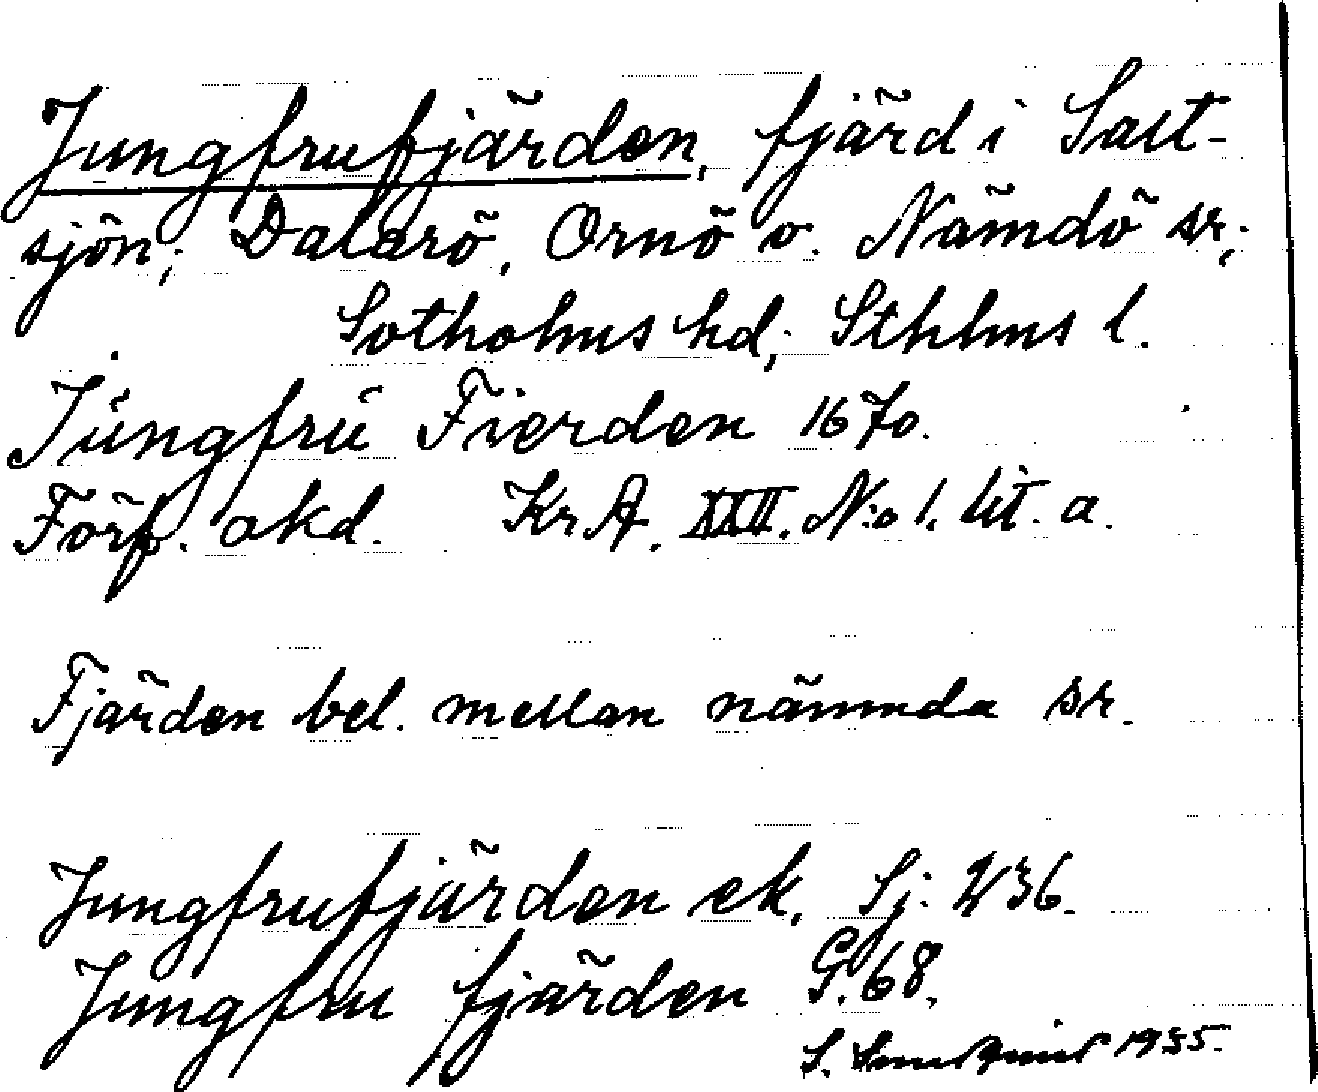 Jungfrufjärden, fjärd i Salt-
sjön; Dalarö, Ornö o. Nämdö sr,
Sotholms hd; Sthlms l.
Jungfrú Fierden 1670.
Förf. okd. KrA. XXII. N:o 1. lit. a.
Fjärden bel. mellan nämnda sr.
Jungfrufjärden ek. Sj: 236.
Jungfru fjärden G. 68.
S. 1935.